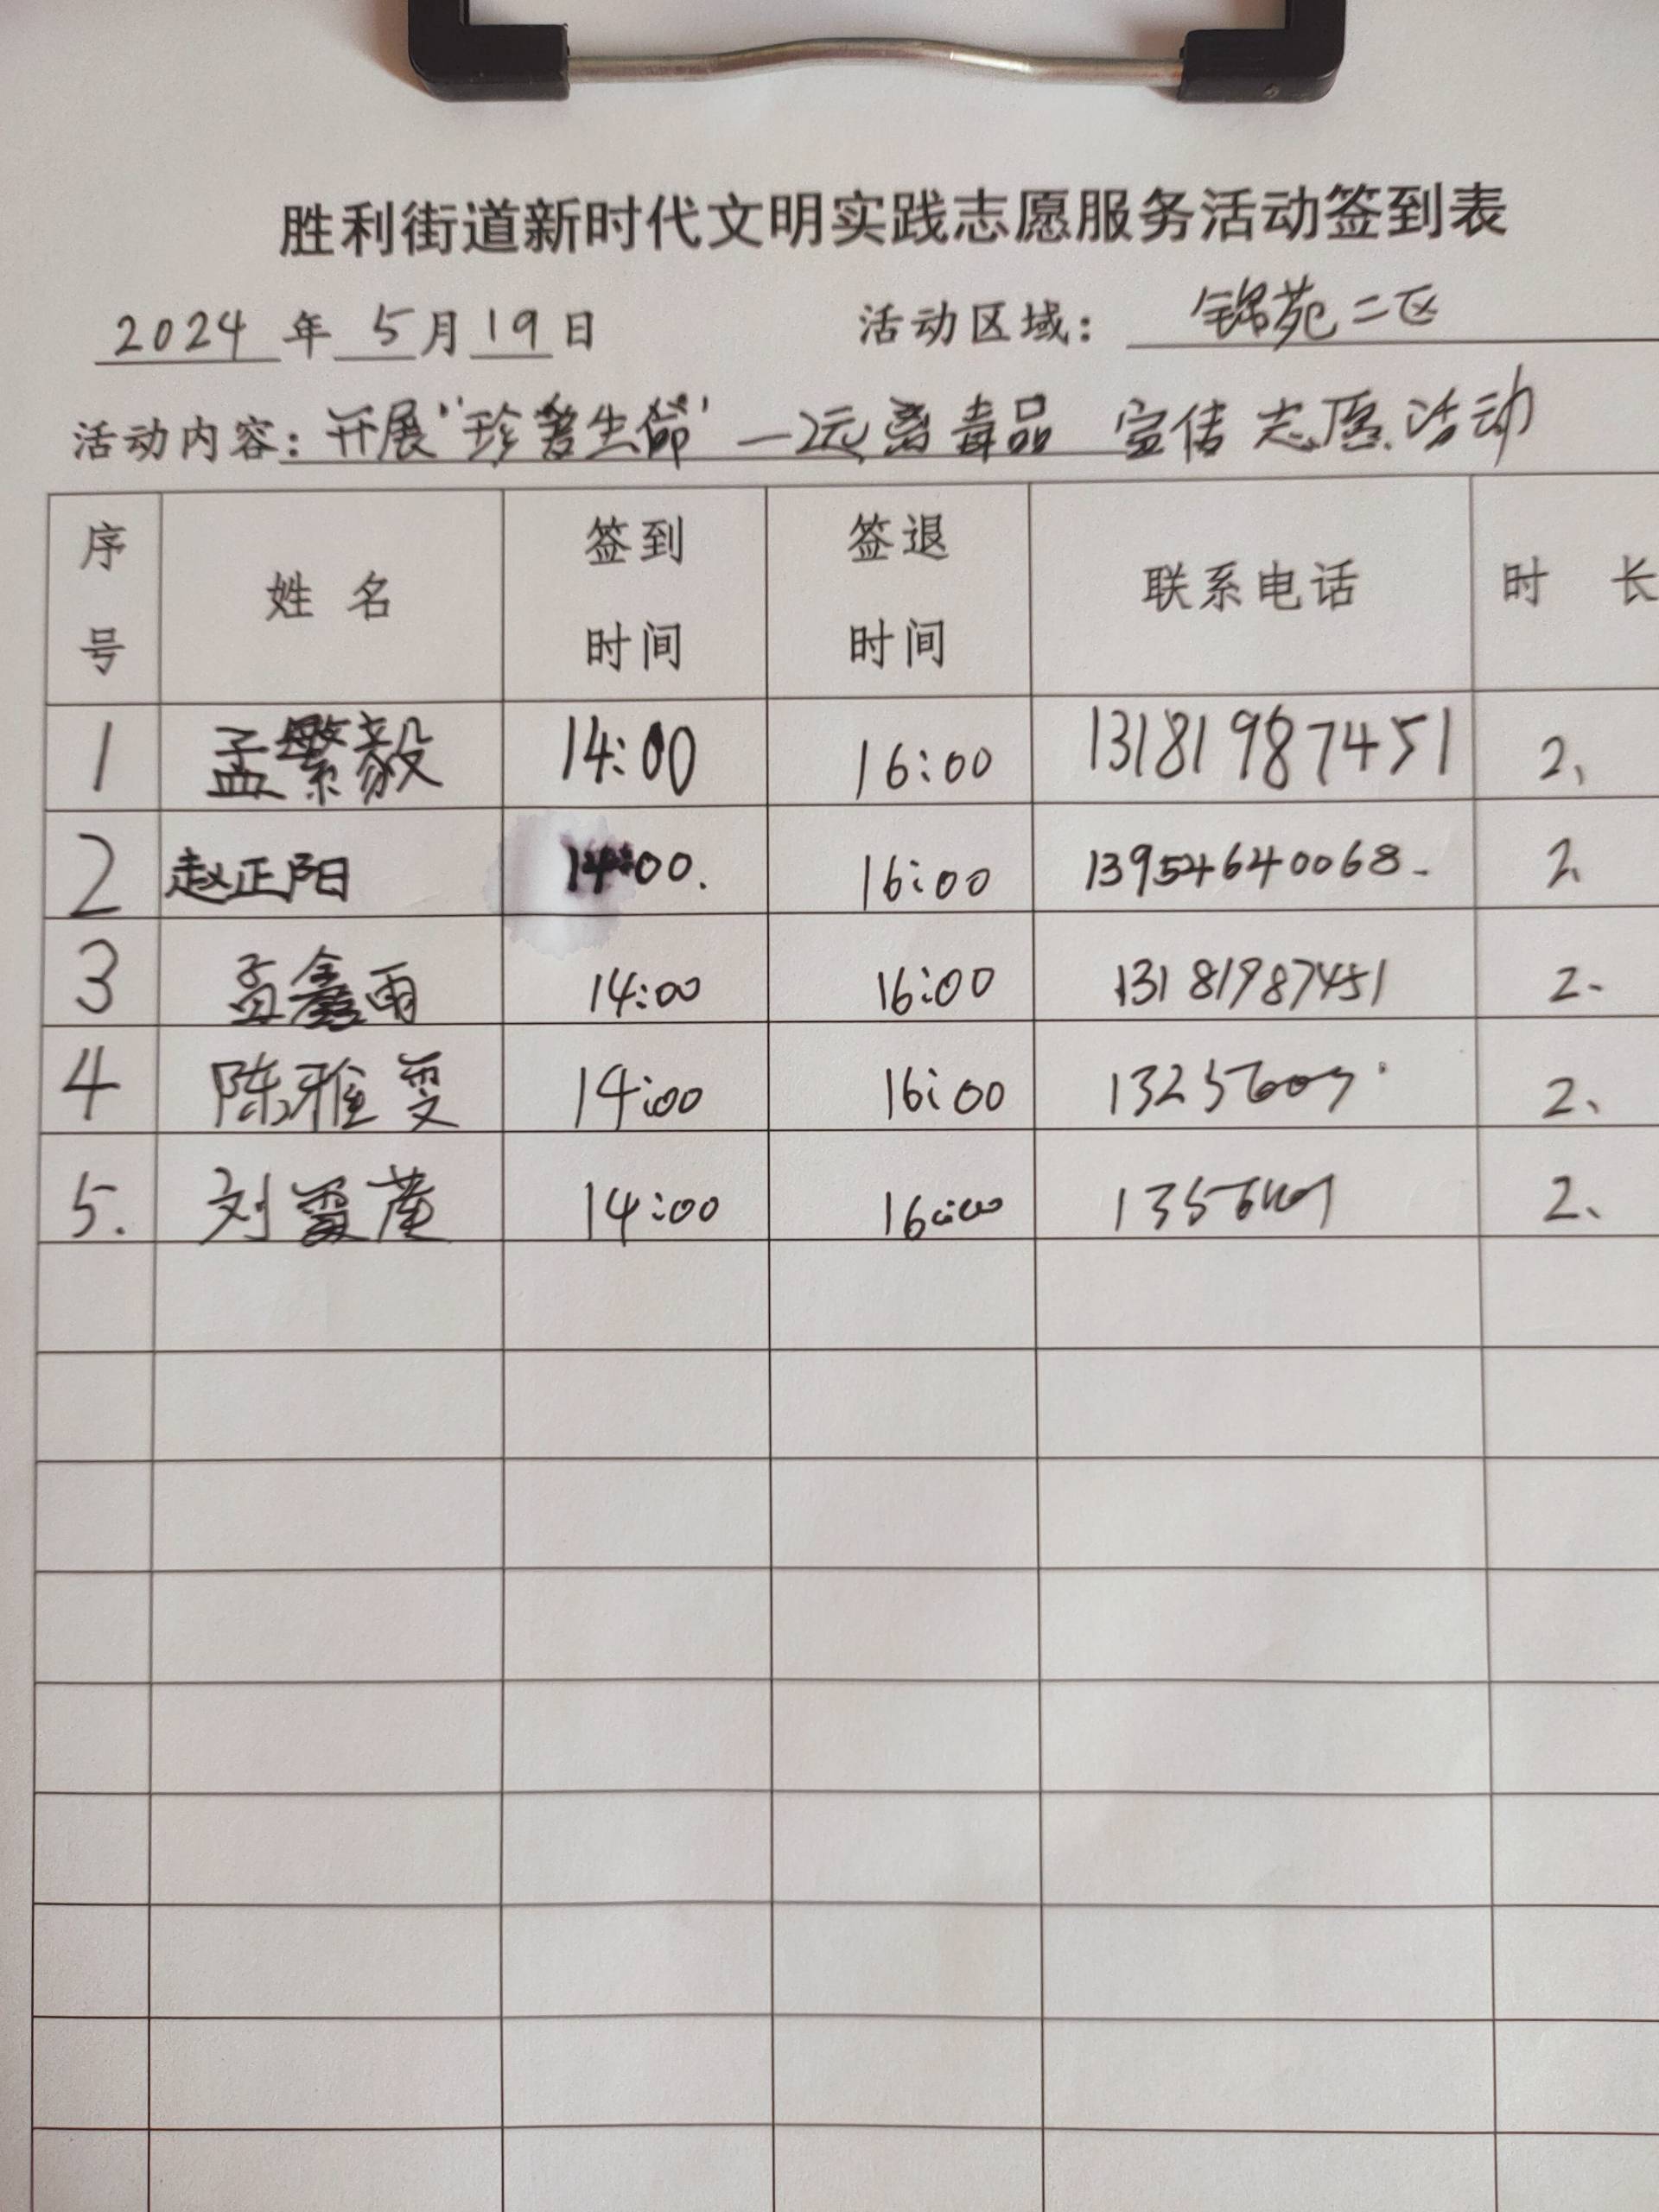 胜利街道新时代文明实践志愿服务活动签到表
2024 年 5月19日 活动区域: 锦苑二区
活动内容: 开展"珍爱生命" —远离毒品 宣传志愿活动
序号 姓名 签到时间 签退时间 联系电话 时长
1 孟繁毅 14:00 16:00 13181987451 2、
2 赵正阳 14:00. 16:00 13954640068 2
3 孟鑫雨 14:00 16:00 13181987451 2
4 陈雅雯 14:00 16:00 2、
5. 刘 14:00 16:00 2、